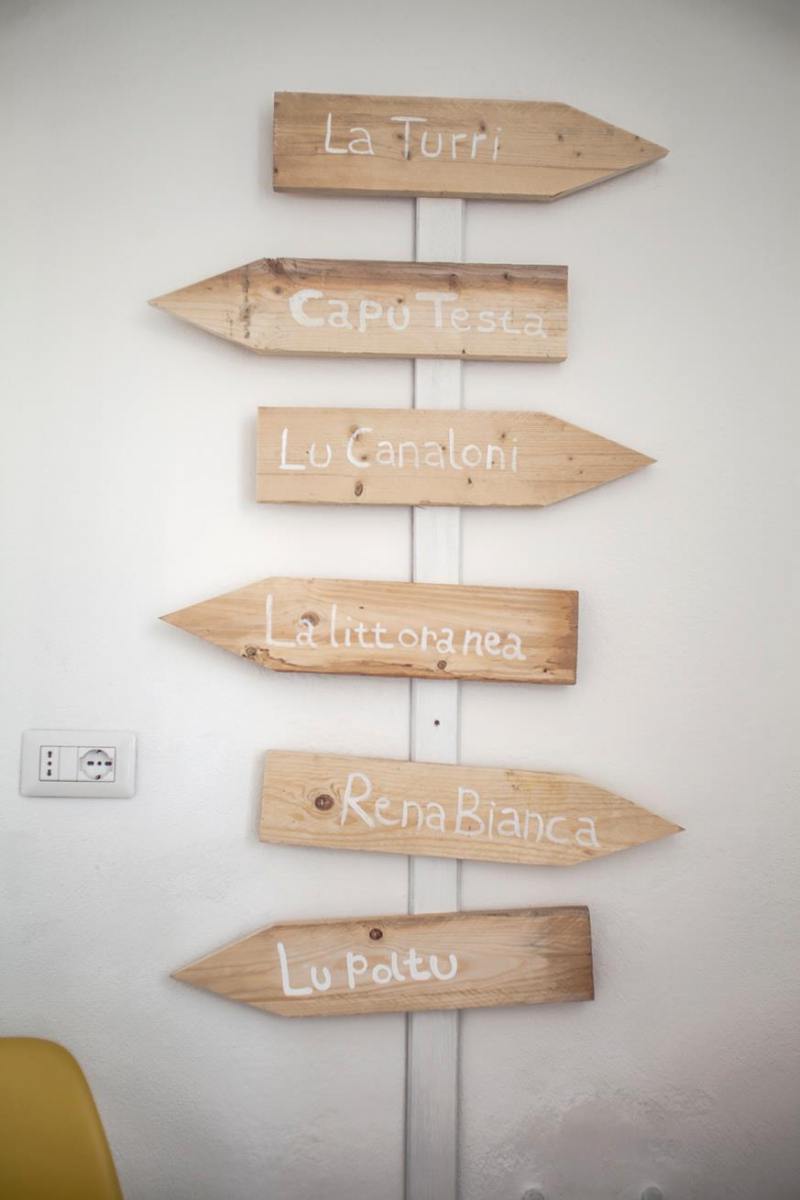 La Turri
Capu Testa
Lu Canaloni
La littoranea
Rena Bianca
Lu poltu